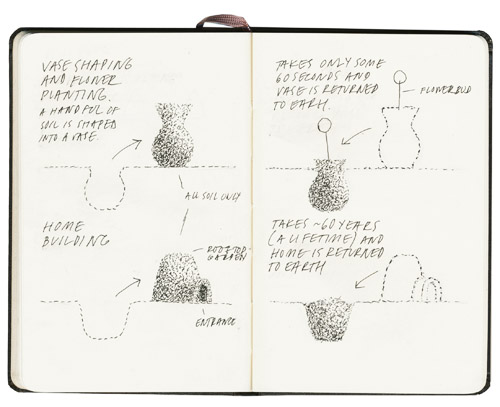 VASE SHAPING
AND FLOWER
PLANTING.
A HANDFUL OF
SOIL IS SHAPED
INTO A VASE.
ALL SOIL ONLY
HOME
BUILDING
ROOFTOP
GARDEN
ENTRANCE
TAKES ONLY SOME
60 SECONDS AND
VASE IS RETURNED
TO EARTH.
FLOWERBUD
TAKES ~60 YEARS
(A LIFETIME) AND
HOME IS RETURNED
TO EARTH